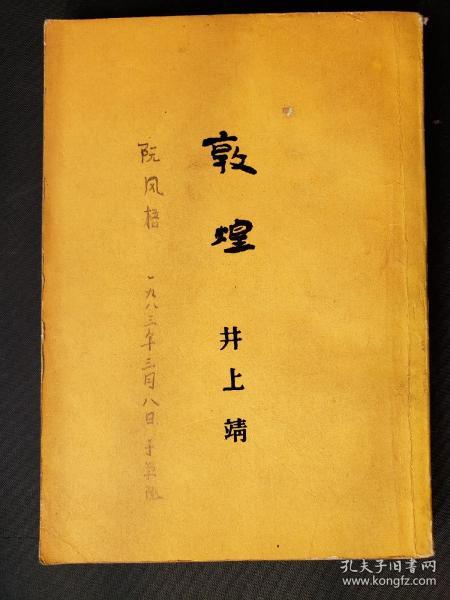 敦煌
井上靖
阮风梧
一九八三年三月八日于
孔夫子旧书网
www.kongfz.com